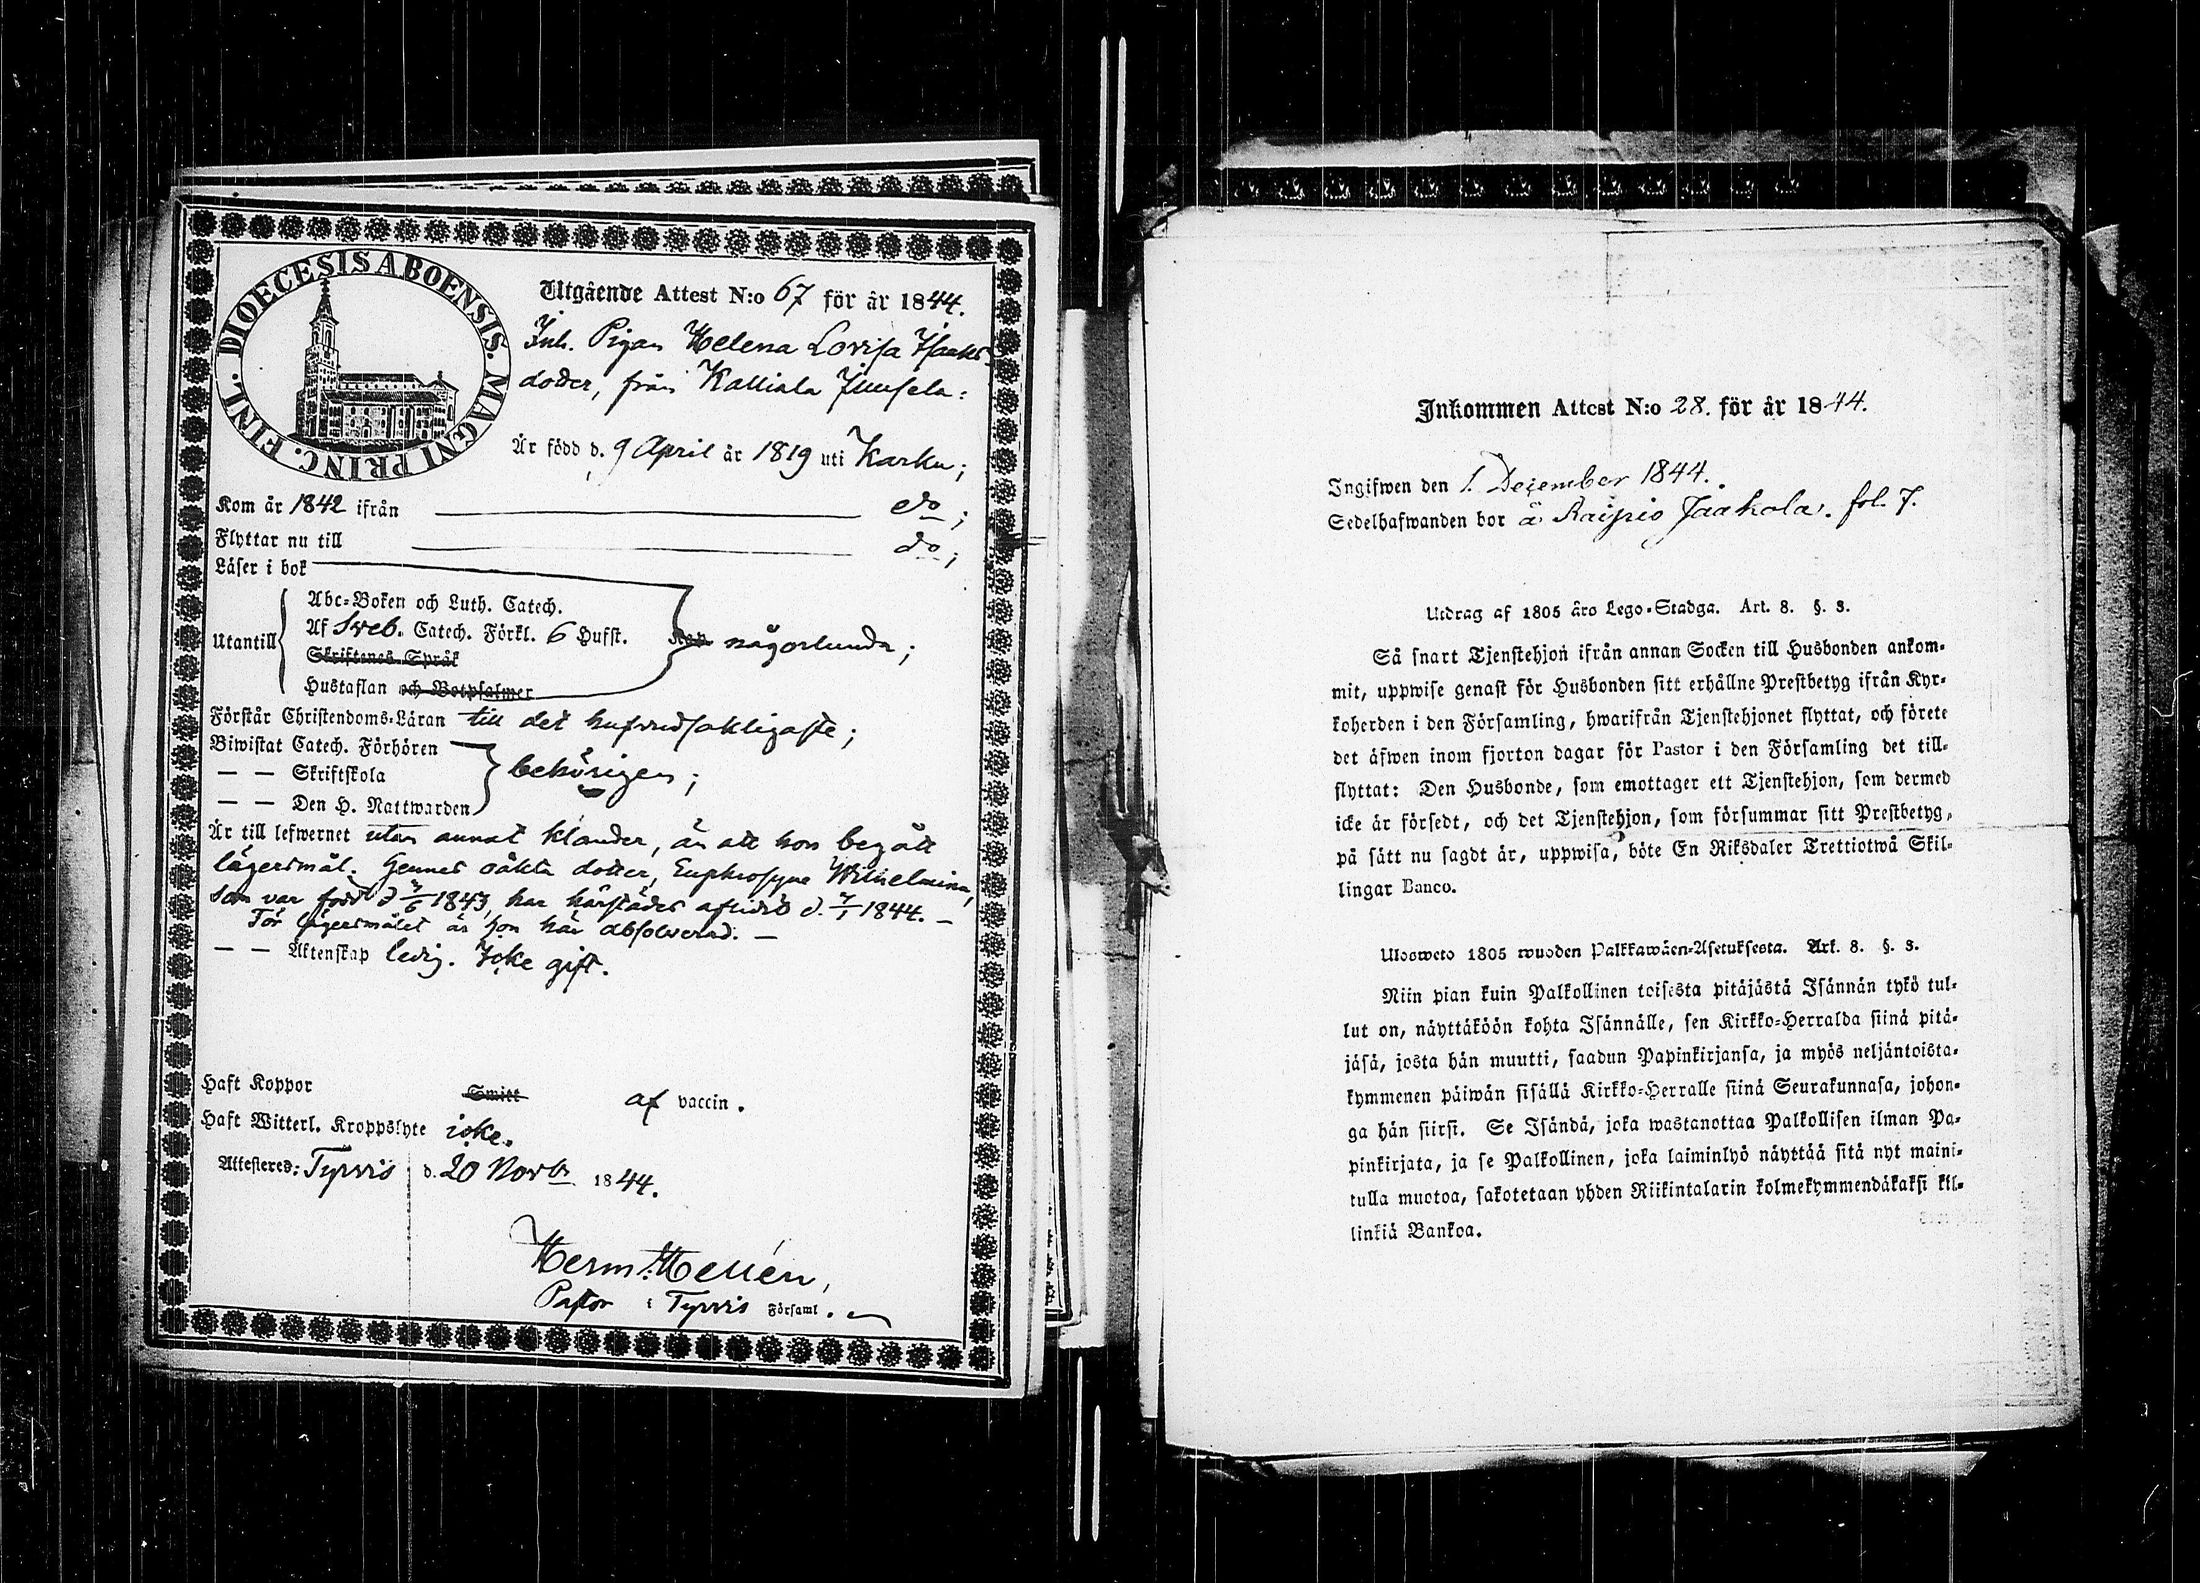 DIOECESIS ABOENSIS. MAGNI PRINC. FINL.
Utgående Attest N:o 67 för år 1844.
Inh. Pigan Helena Lovisa Isaks-
dotter, från Kalliala Juusela:
Är född d. 9 April år 1819 uti Karku;
Kom år 1842 ifrån do;
Flyttar nu till do;
Läser i bok
Utantill
Abc-Boken och Luth. Catech.
Af Sveb. Catech. Förkl. 6 Hufst.
någorlunda;
Skriftenes Språk
Hustaflan och Botpsalmer
Förstår Christendoms-Läran till det hufvudsakligaste;
Biwistat Catech. Förhören
— — Skriftskola
behörigen;
— — Den H. Nattwarden
Är till lefwernet utan annat klander, än att hon begått
lägersmål. Hennes oäkta dotter, Euphrosyne Wilhelmina,
som var född d 4/6 1843, har härstädes aflidit d. 4/1 1844. —
För lägersmålet är hon här absolverad. —
— — Äktenskap ledig. Icke gift.
Haft Koppor Smitt af vaccin.
Haft Witterl. Kroppslyte icke.
Attesteras: Tyrvis d. 20 Novbr 1844.
Herm. Hellén,
Pastor i Tyrvis Församl.
Inkommen Attest N:o 28. för år 1844.
Ingifwen den 1. December 1844.
Sedelhafwanden bor å Raipio Jaakola. fol. 7.
Utdrag af 1805 års Lego-Stadga. Art. 8. §. 3.
Så snart Tjenstehjon ifrån annan Socken till Husbonden ankom-
mit, uppwise genast för Husbonden sitt erhållne Prestbetyg ifrån Kyr-
koherden i den Församling, hwarifrån Tjenstehjonet flyttat, och förete
det äfwen inom fjorton dagar för Pastor i den Församling det till-
flyttat: Den Husbonde, som emottager ett Tjenstehjon, som dermed
icke är försedt, och det Tjenstehjon, som försummar sitt Prestbetyg,
på sätt nu sagdt är, uppwisa, böte En Riksdaler Trettiotwå Skil-
lingar Banco.
Ulosweto 1805 wuoden Palkkawäen-Asetuksesta. Art. 8. §. 3.
Niin pian kuin Palkollinen toisesta pitäjästä Isännän tykö tul-
lut on, näyttäköön kohta Isännälle, sen Kirkko-Herralda siinä pitä-
jäsä, josta hän muutti, saadun Papinkirjansa, ja myös neljäntoista-
kymmenen päiwän sisällä Kirkko-Herralle siinä Seurakunnasa, johon-
ga hän siirsi. Se Isändä, joka wastanottaa Palkollisen ilman Pa-
pinkirjata, ja se Palkollinen, joka laiminlyö näyttää sitä nyt maini-
tulla muotoa, sakotetaan yhden Riikintalarin kolmekymmendäkaksi kil-
linkiä Bankoa.